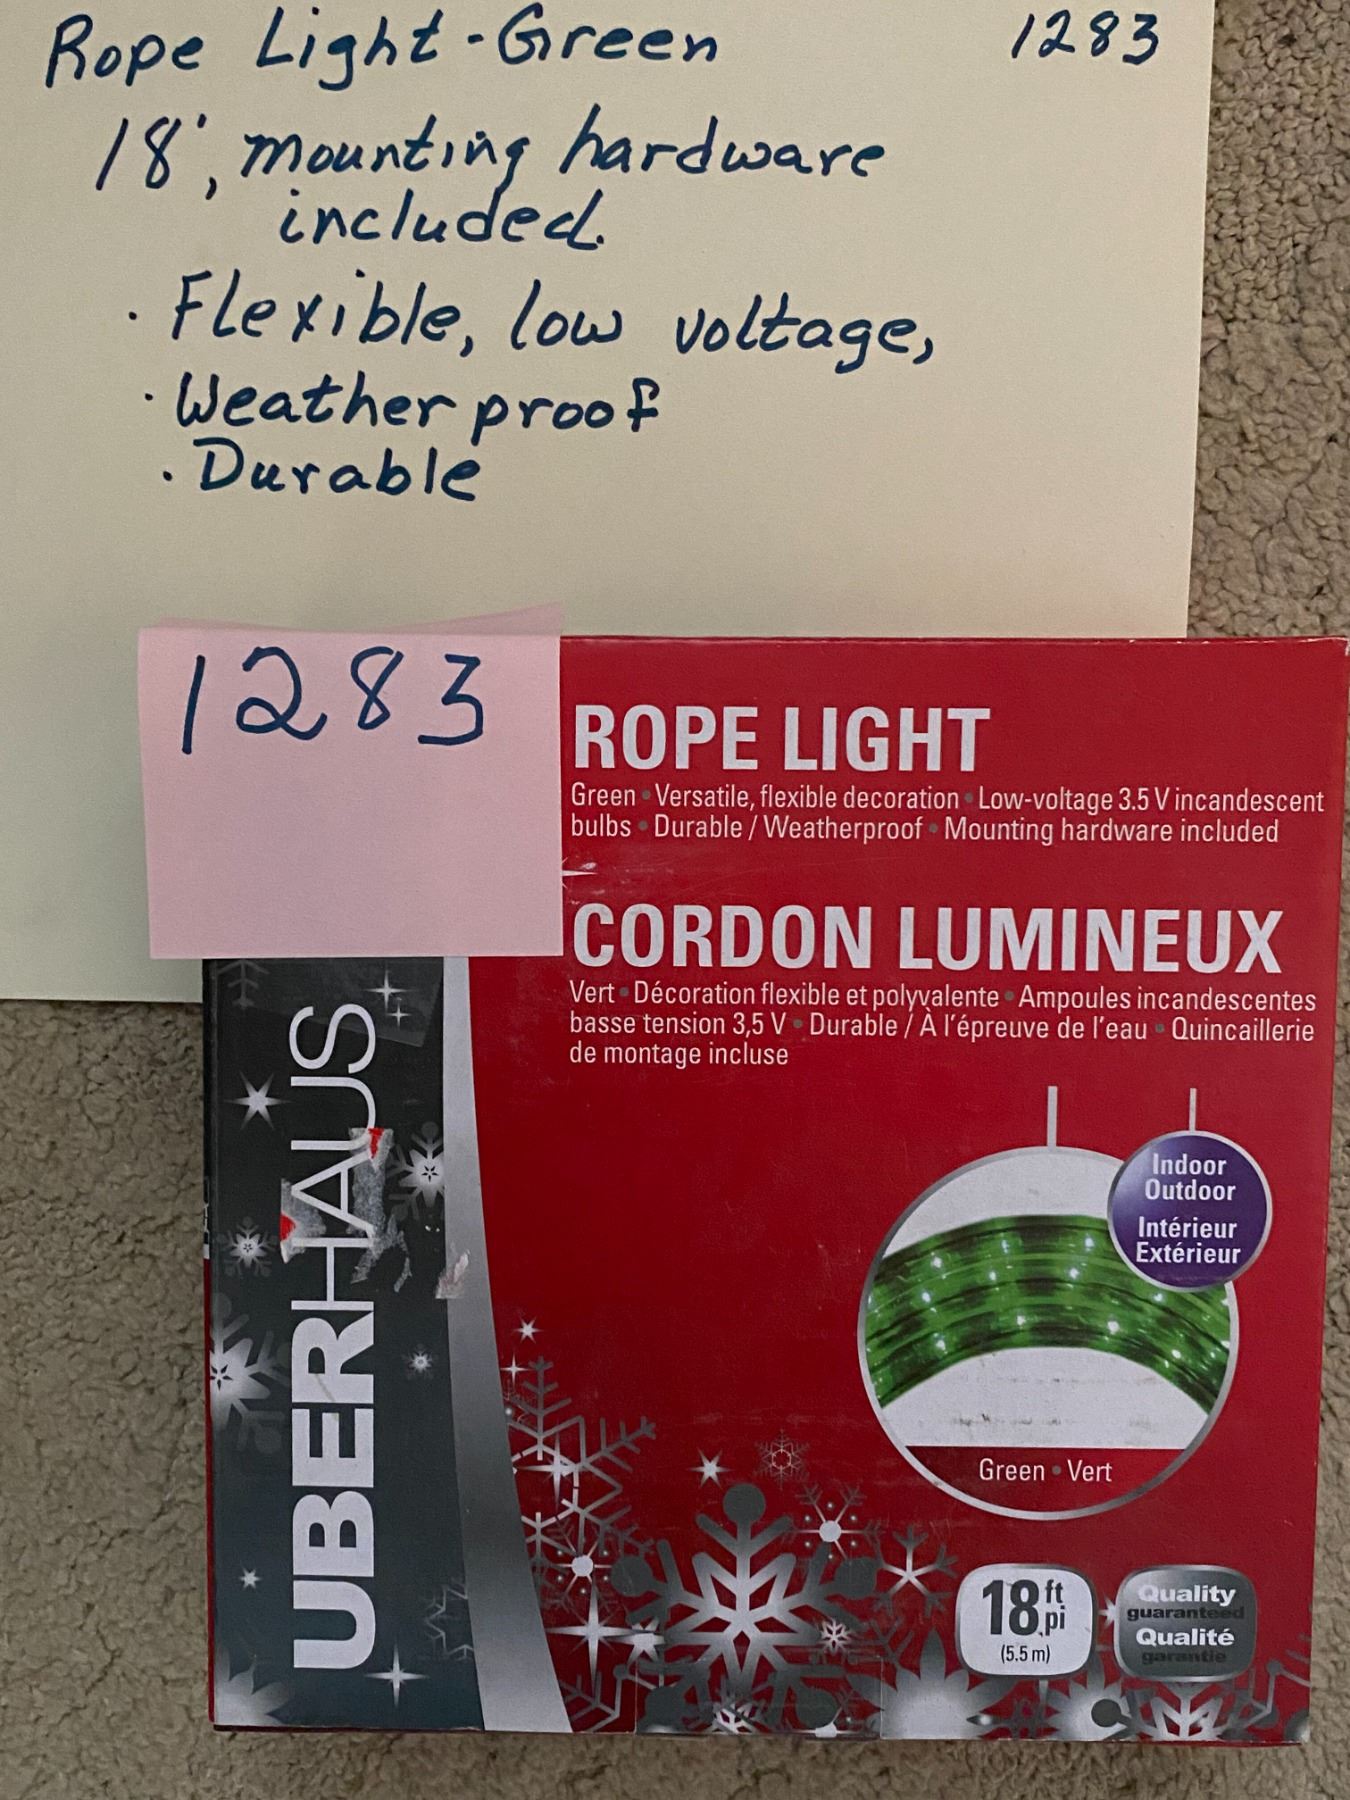 Rope Light - Green 1283
18', mounting hardware
included.
· Flexible, low voltage,
· Weather proof
· Durable
1283
ROPE LIGHT
Green • Versatile, flexible decoration • Low-voltage 3.5 V incandescent
bulbs • Durable / Weatherproof • Mounting hardware included
CORDON LUMINEUX
Vert • Décoration flexible et polyvalente • Ampoules incandescentes
basse tension 3,5 V • Durable / À l'épreuve de l'eau • Quincaillerie
de montage incluse
UBERHAUS
Indoor
Outdoor
Intérieur
Extérieur
Green • Vert
18 ft
pi
(5.5 m)
Quality
guaranteed
Qualité
garantie